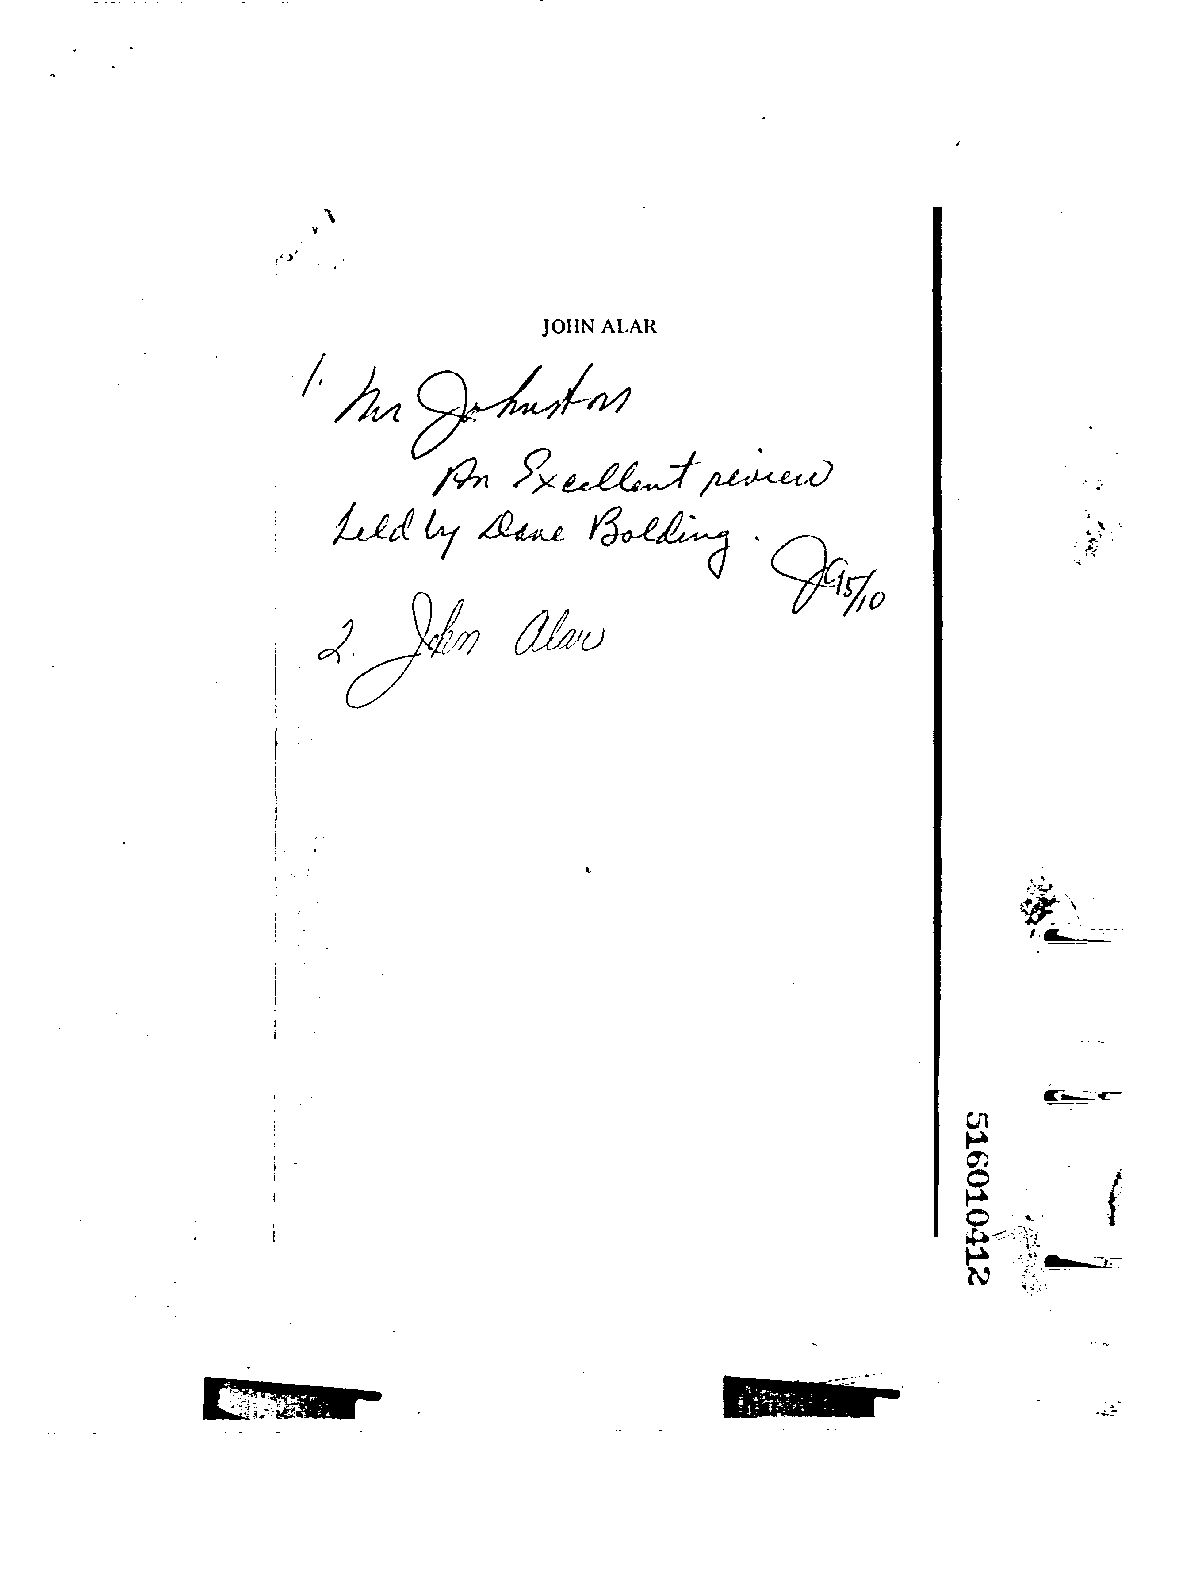 JOHN ALAR
1. Mr Johnston
An Excellent review
held by Dave Bolding.
JA 5/10
2. John Alar
516010412